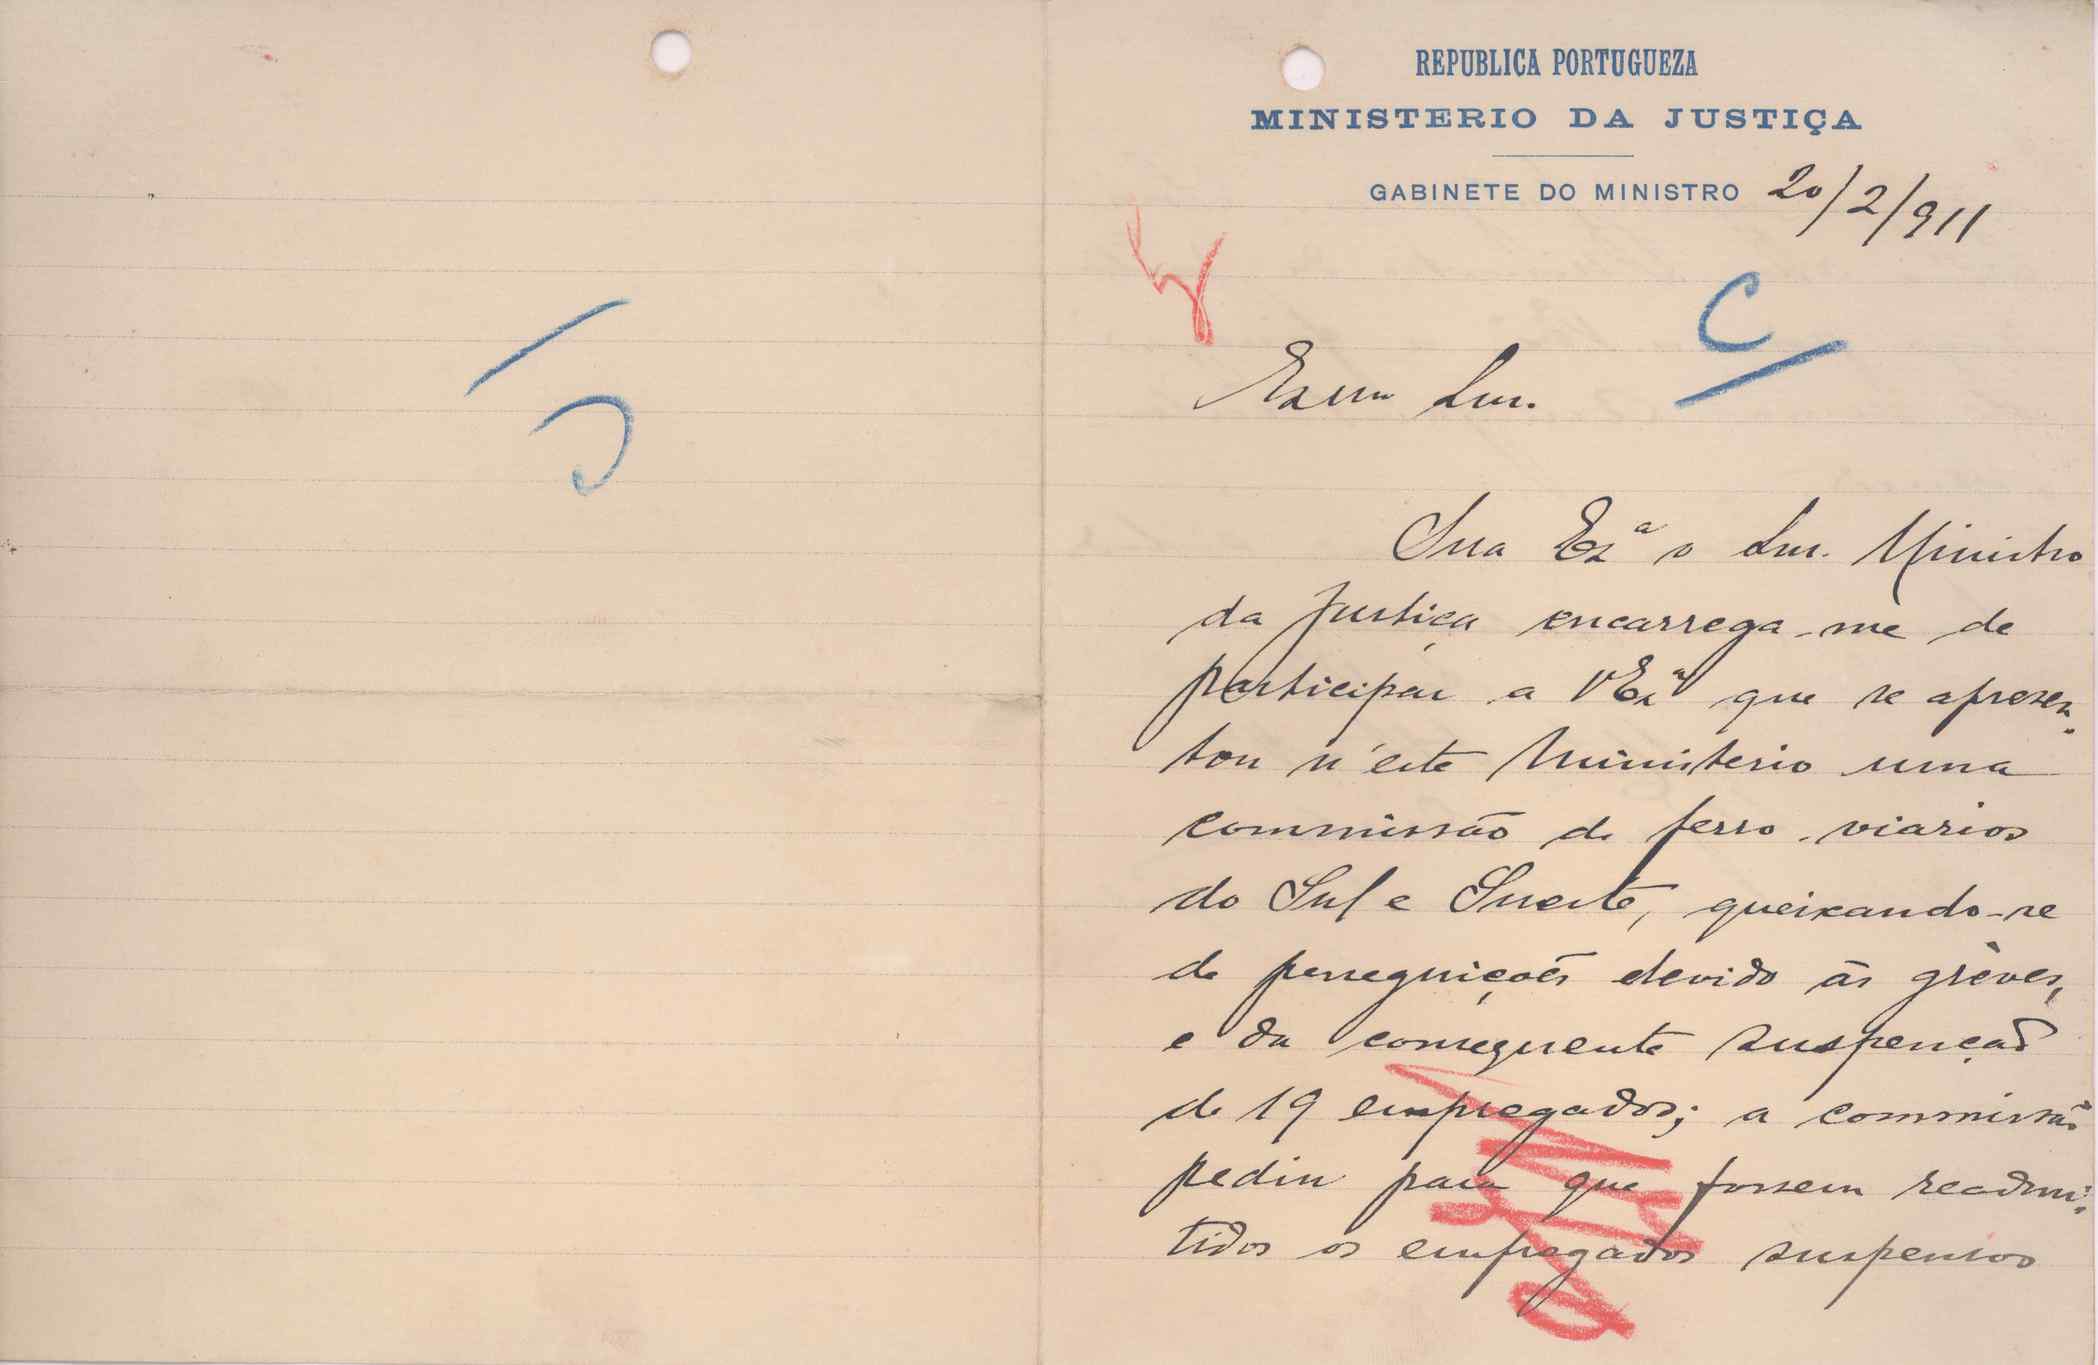 REPUBLICA PORTUGUEZA
MINISTERIO DA JUSTIÇA
GABINETE DO MINISTRO 20/2/911
C
Exmo Snr.
Sua Exª o Snr. Ministro
da Justiça encarrega-me de
participar a V Exª que se apresen-
tou n'este Ministerio uma
commissão de ferro-viarios
do Sul e Sueste, queixando-se
de perseguições devido ás gréves,
e da consequente suspenção
de 19 empregados; a commissão
pediu para que fossem readmi-
tidos os empregados suspensos